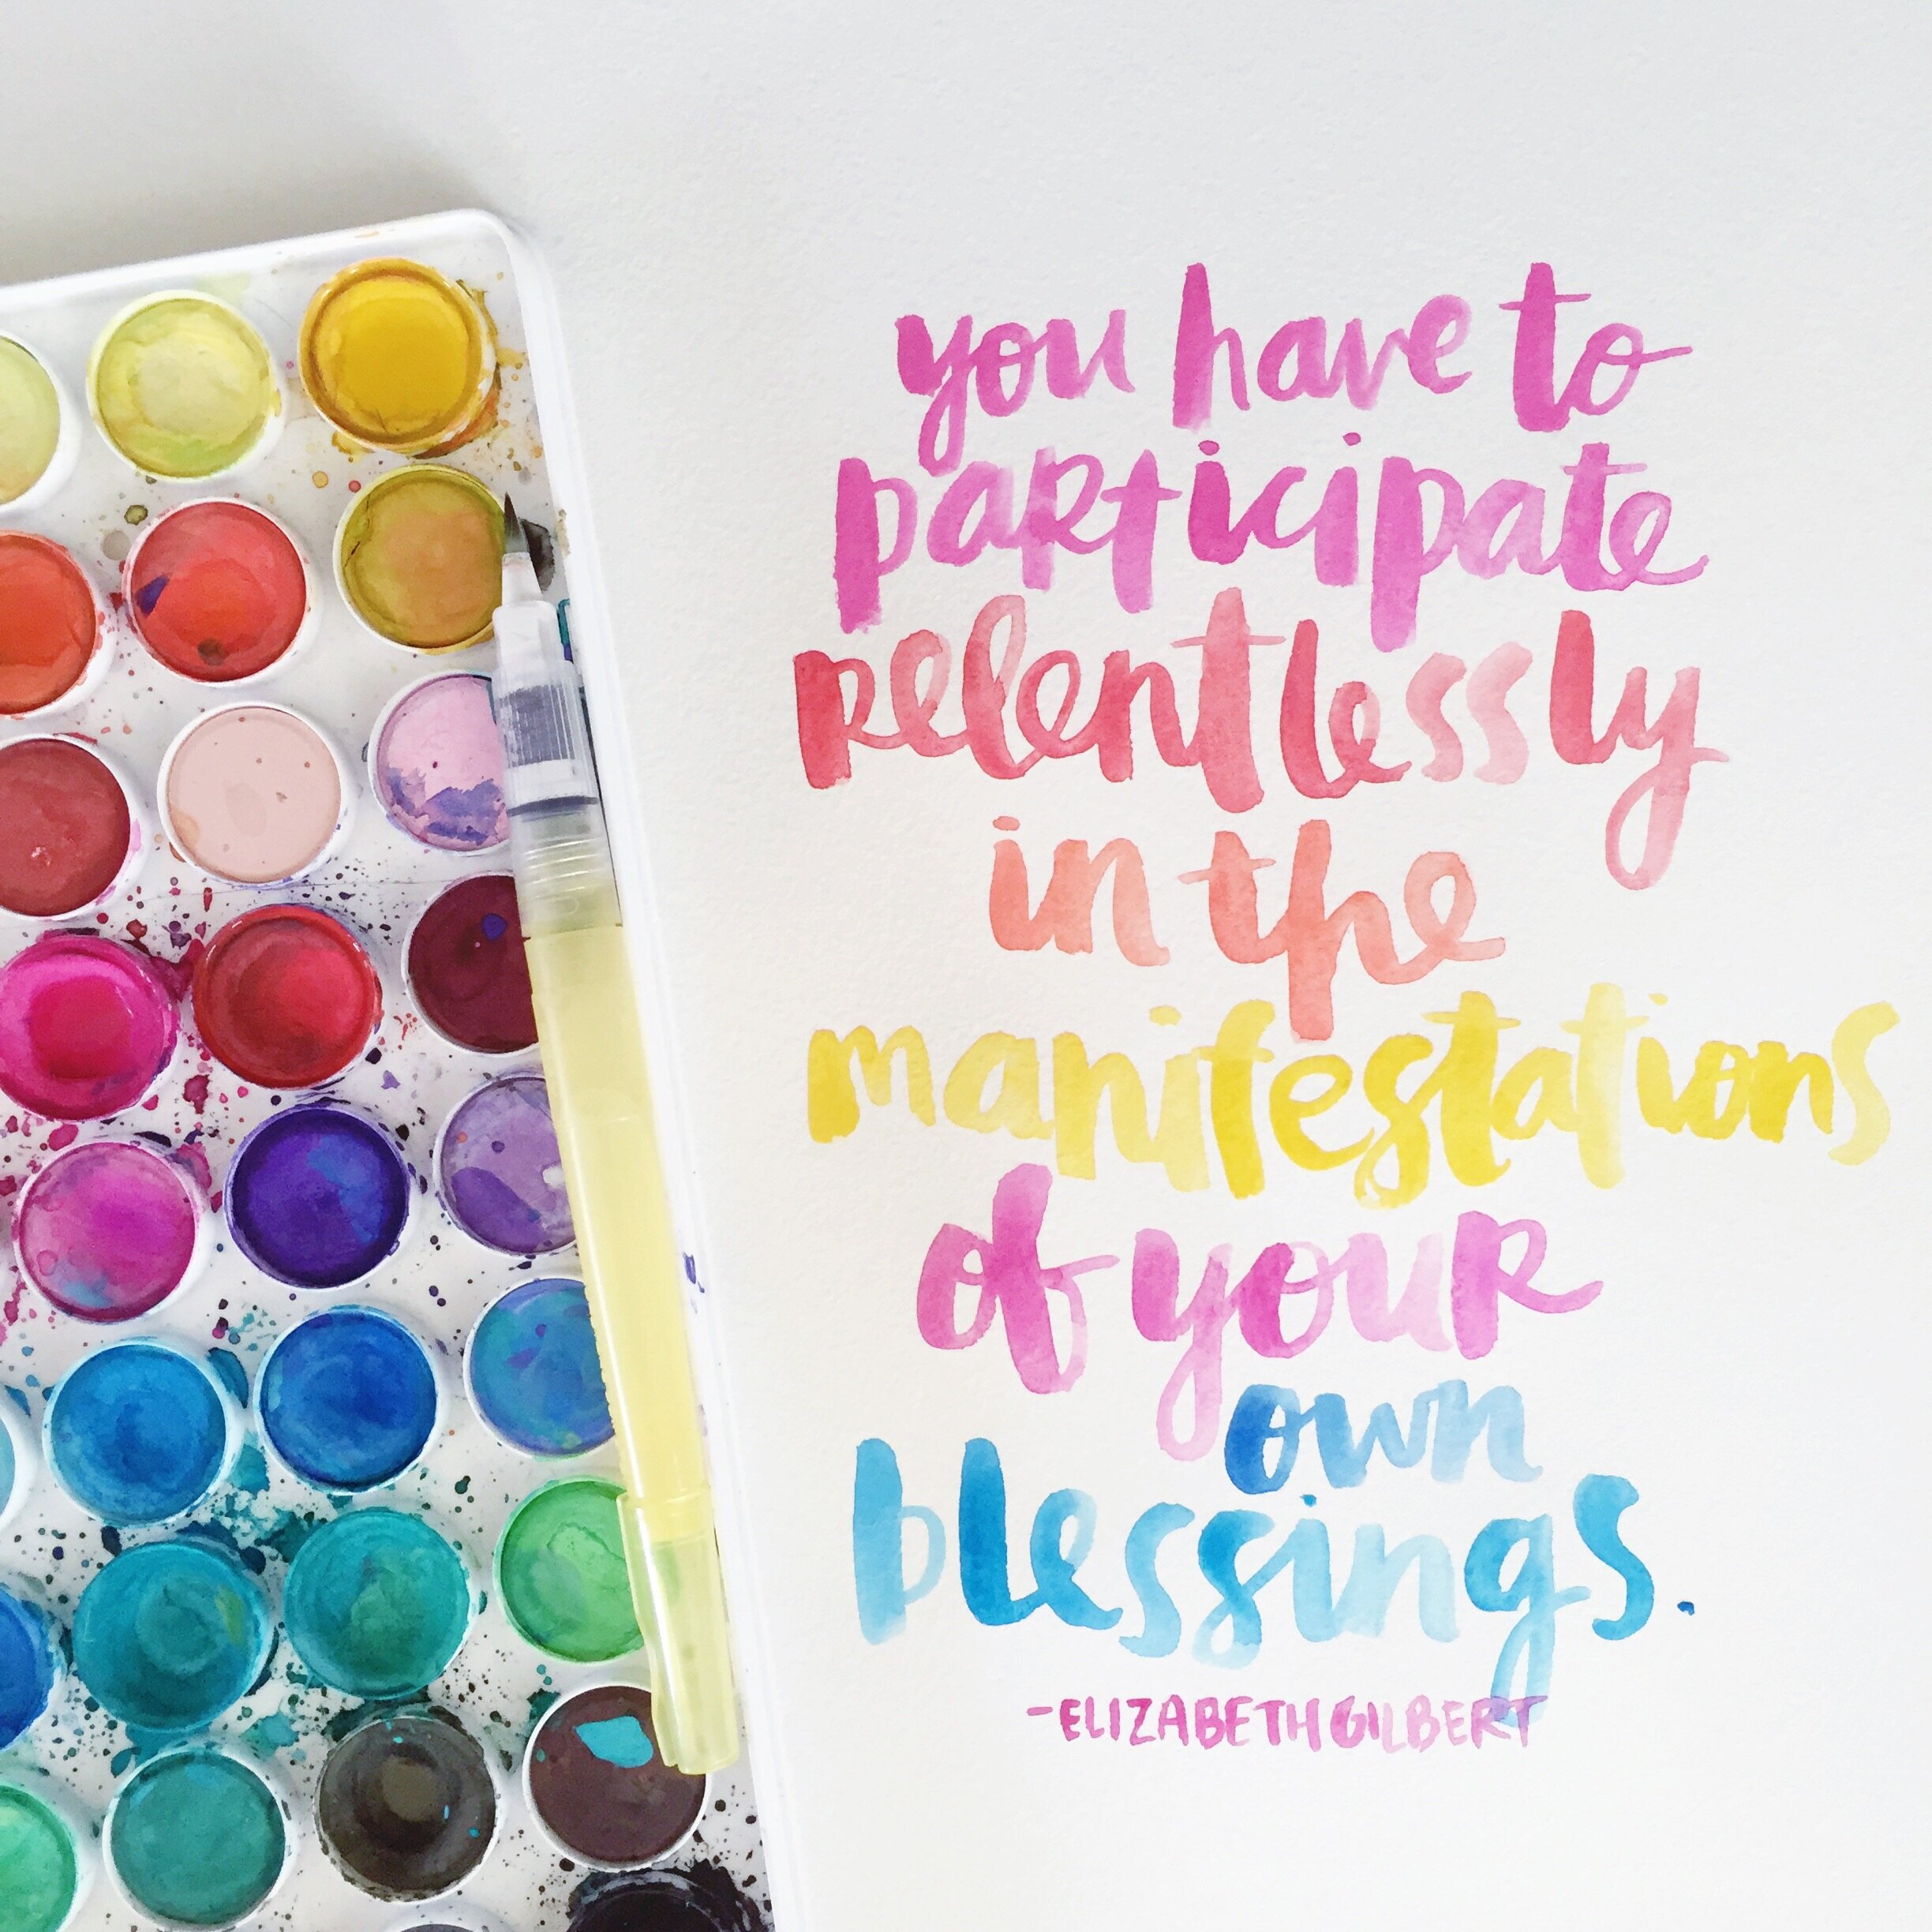 you have to
participate
relentlessly
in the
manifestations
of your
own
blessings.
-ELIZABETH GILBERT